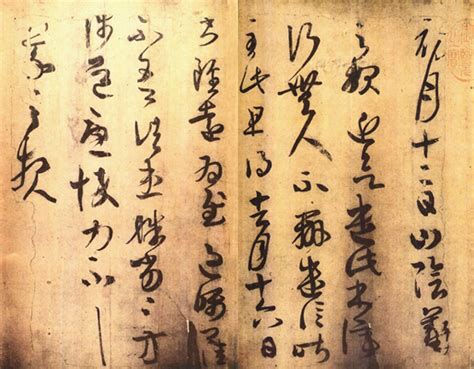 初月十二日山陰羲
之報近欲遣此書停
行無人不辦遣信昨
至此且得去月十六日
書雖遠為慰過囑卿
不吾諸患殊劣〻方
涉道憂悴力不具
羲之報